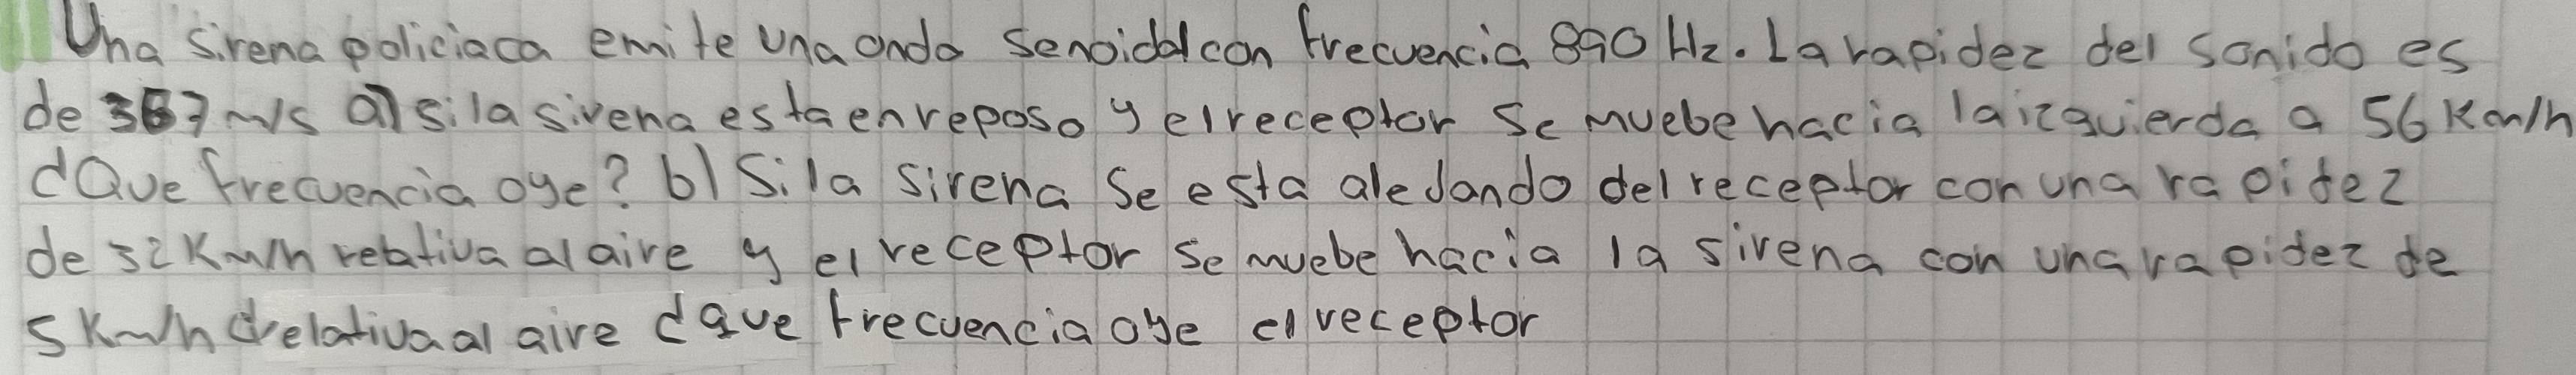 Una sirena policiaca emite una onda senoidal con frecuencia 890 Hz. La rapidez del sonido es
de 367 m/s a) si la sirena esta en reposo y el receptor se muebe hacia la izquierda a 56 Km/h
¿Que frecuencia oye? b) Si la sirena se esta alejando del receptor con una rapidez
de 52 Km/h relativa al aire y el receptor se muebe hacia la sirena con una rapidez de
5 Km/h relativa al aire ¿que frecuencia oye el receptor